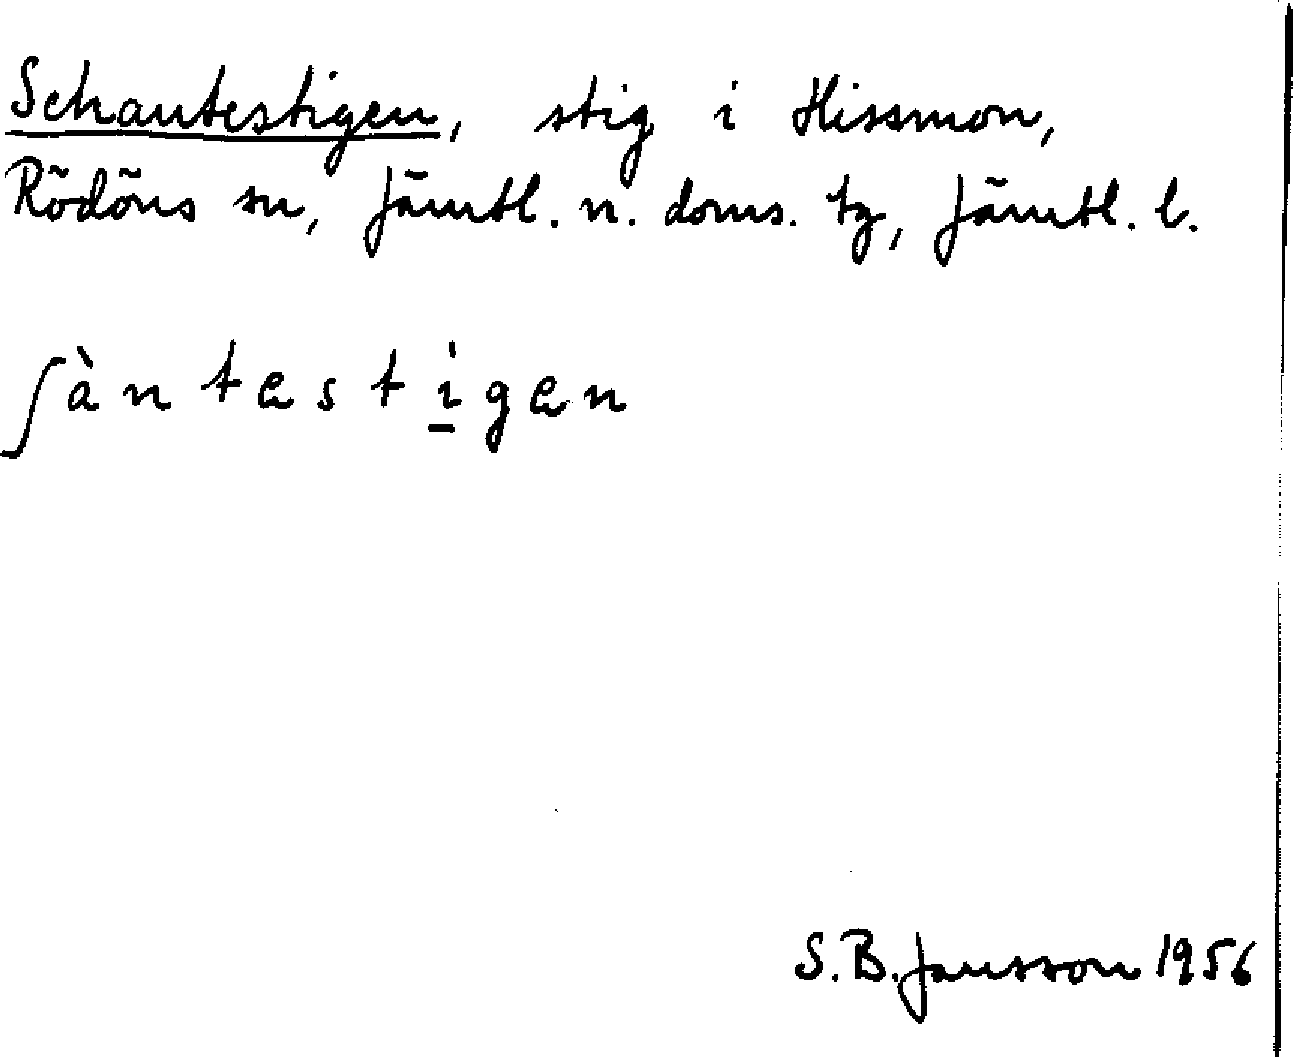 Schantestigen, stig i Hissmon,
Rödöns sn, Jämtl. n. doms. tg, Jämtl. l.
ʃàntesti̲gen
S.B. Jansson 1956